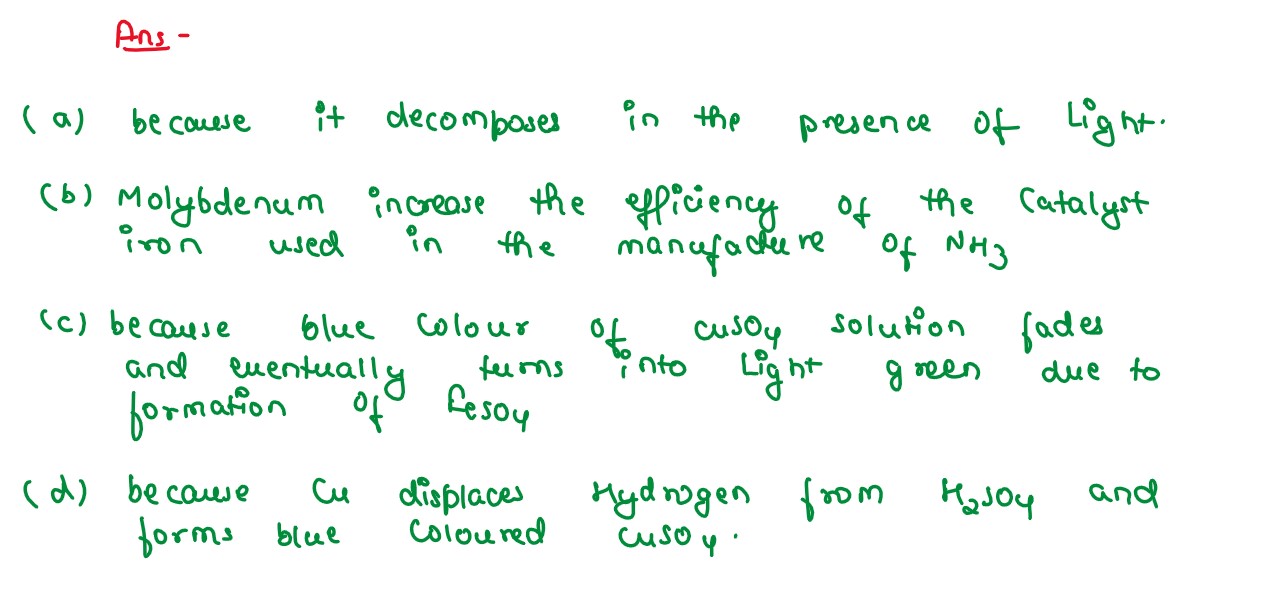 Ans -
(a) because it decomposes in the presence of Light.
(b) Molybdenum increase the efficiency of the Catalyst
iron used in the manufacture of NH3
(c) because blue Colour of CuSO4 solution fades
and eventually turns into Light green due to
formation of FeSO4
(d) because Cu displaces Hydrogen from H2SO4 and
forms blue Coloured CuSO4.